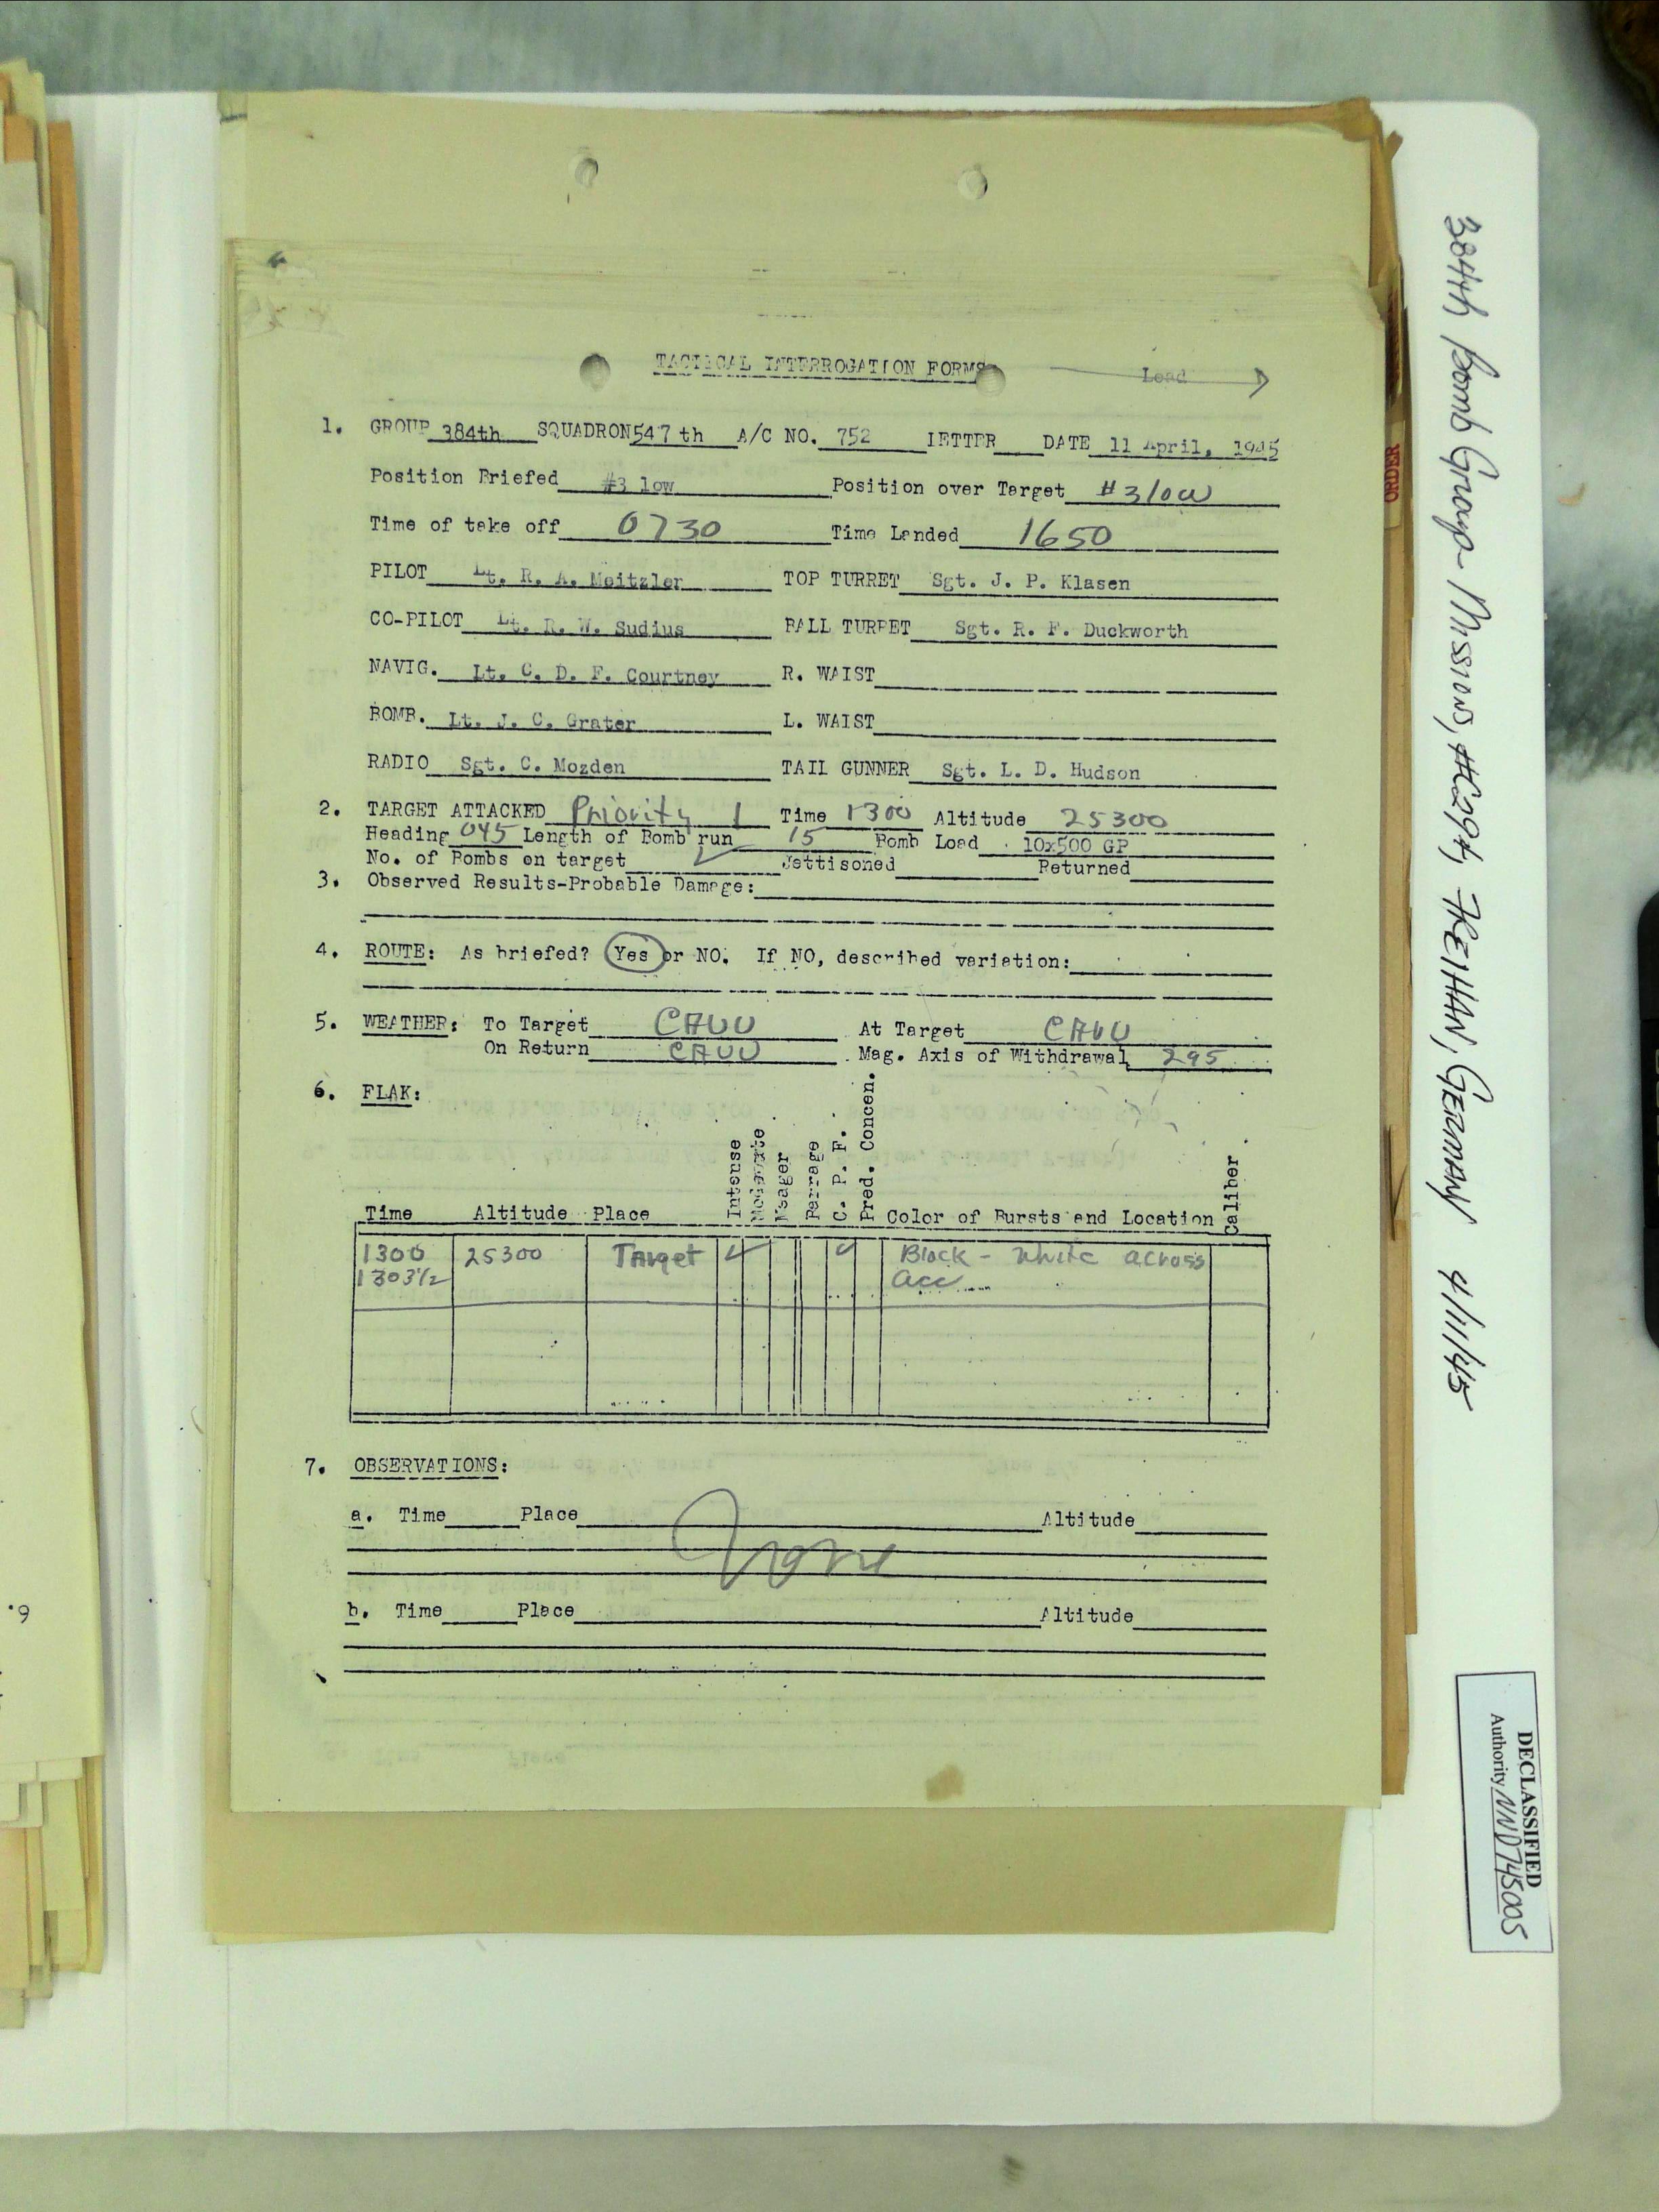 TACTICAL INTERROGATION FORMS Lead
1. GROUP 384th SQUADRON 547 th A/C NO. 752 LETTER DATE 11 April, 1945
Position Briefed #3 low Position over Target #3 low
Time of take off 0730 Time Landed 1650
PILOT Lt. R. A. Meitzler TOP TURRET Sgt. J. P. Klasen
CO-PILOT Lt. R. W. Sudius BALL TURRET Sgt. R. F. Duckworth
NAVIG. Lt. C. D. F. Courtney R. WAIST
BOMB. Lt. J. C. Grater L. WAIST
RADIO Sgt. C. Mozden TAIL GUNNER Sgt. L. D. Hudson
2. TARGET ATTACKED Priority 1 Time 1300 Altitude 25300
Heading 045 Length of Bomb run 15 Bomb Load 10x500 GP
No. of Bombs on target ✓ Jettisoned Returned
3. Observed Results-Probable Damage:
4. ROUTE: As briefed? Yes or NO. If NO, described variation:
5. WEATHER: To Target CAVU At Target CAVU
On Return CAVU Mag. Axis of Withdrawal 295
6. FLAK:
Time Altitude Place Intense Moderate Meager Barrage C. P. F. Pred. Concen. Color of Bursts and Location Caliber
1300 25300 Target ✓ ✓ Black - white across
1303½ acc
7. OBSERVATIONS:
a. Time Place Altitude
None
b. Time Place Altitude
384th Bomb Group - Missions, #C294, TREIHAN, GERMANY 4/11/45
DECLASSIFIED
Authority NND745005
ORDER
6.